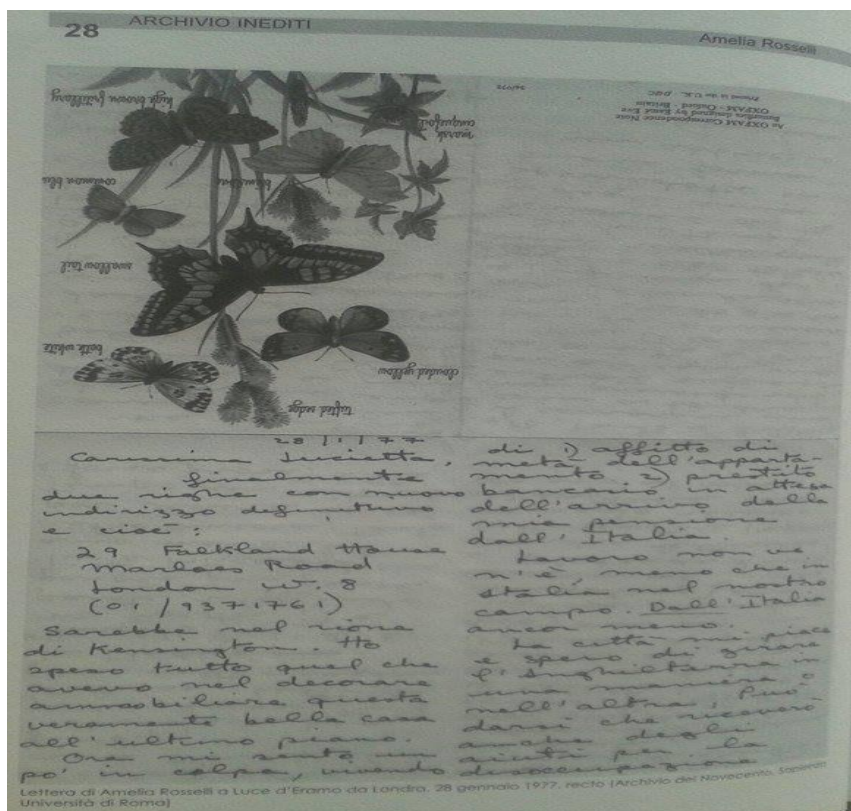 28
ARCHIVIO INEDITI
Amelia Rosselli
An OXFAM Correspondence Note
Butterflies designed by Rand Eve
OXFAM - Oxford, Britain
Printed in the U.K.
high brown fritillary
marsh cinquefoil
common blue
brimstone
swallow tail
bath white
clouded yellow
tufted sedge
28/1/77
Carissima Lucietta,
finalmente
due righe con nuovo
indirizzo definitivo
e cioè:
29 Falkland House
Marloes Road
London W. 8
(01/9371761)
Sarebbe nel rione
di Kensington. Ho
speso tutto quel che
avevo nel decorare
ammobiliare questa
veramente bella casa
all'ultimo piano.
Ora mi sento un
po' in colpa, vivendo
di 1) affitto di
metà dell'apparta-
mento 2) prestito
bancario in attesa
dell'arrivo della
mia pensione
dall'Italia.
Lavoro non ve
n'è, meno che in
Italia nel nostro
campo. Dall'Italia
ancor meno.
La città mi piace
e spero di girare
l'Inghilterra in
una maniera o
nell'altra. Può
darsi che riceverò
anche degli
aiuti per la
disoccupazione
Lettera di Amelia Rosselli a Luce d'Eramo da Londra, 28 gennaio 1977, recto (Archivio del Novecento, Sapienza
Università di Roma)